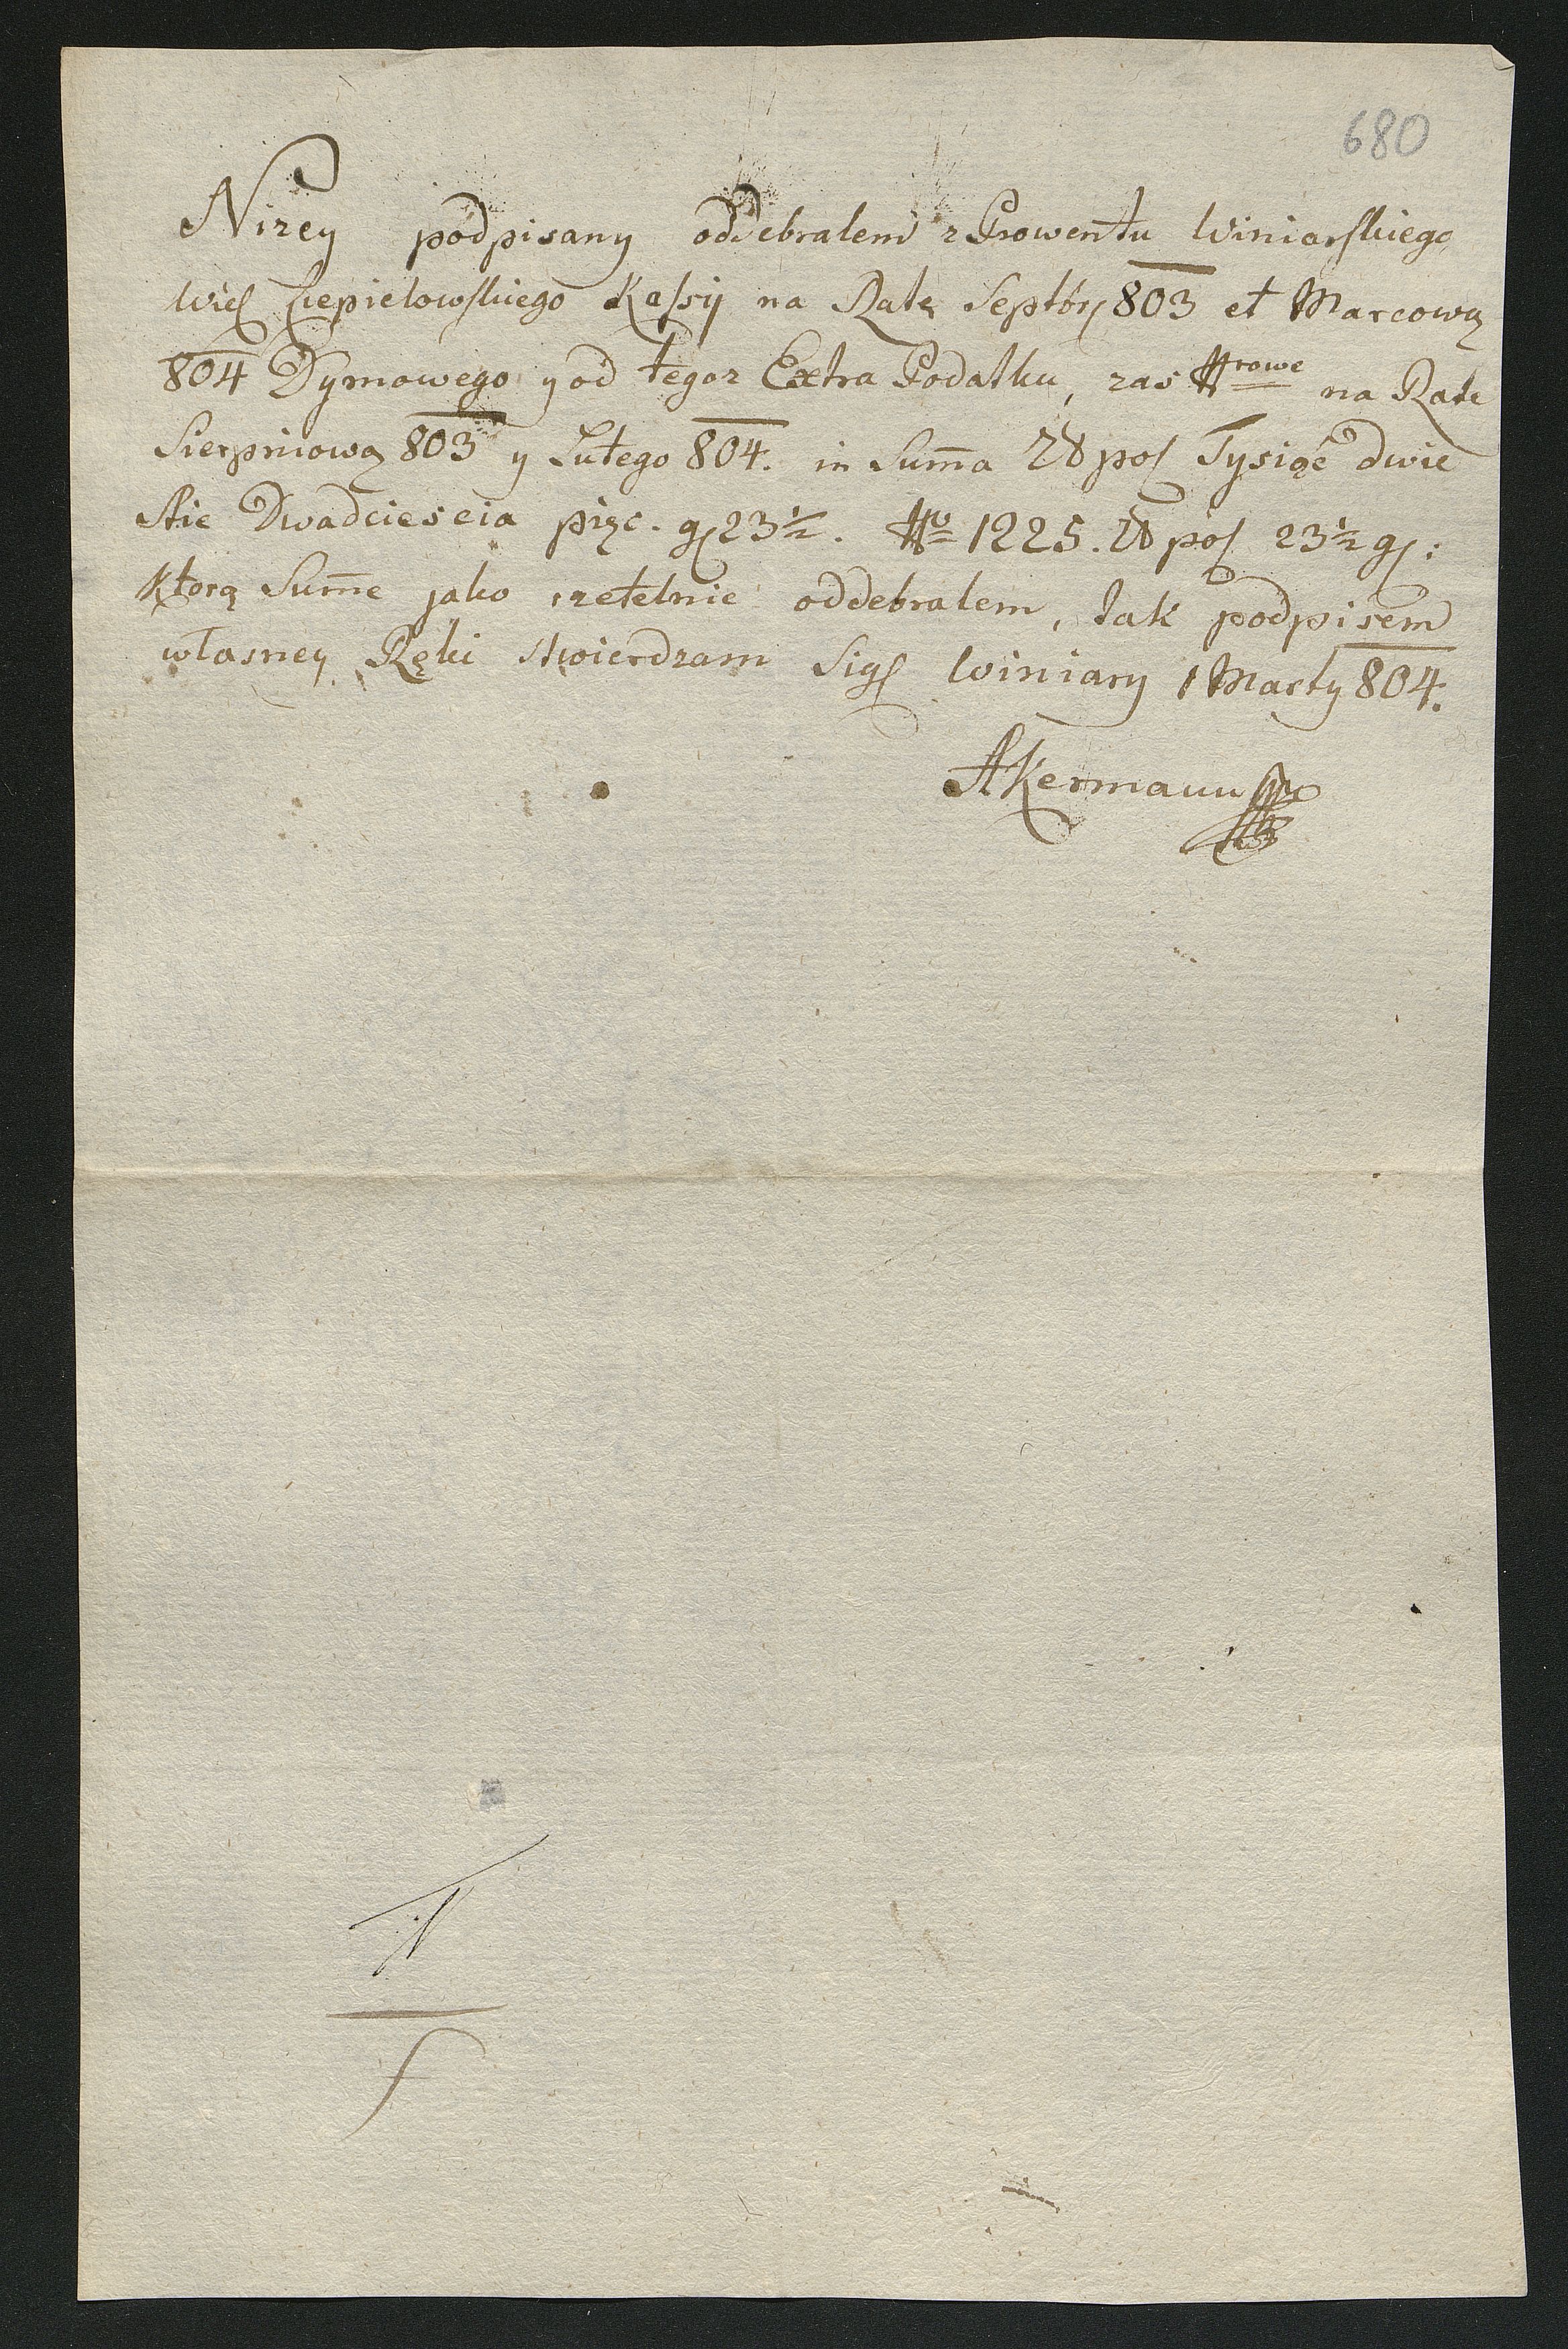 680
Nizey podpisany oddebralem z Prowentu Winiarskiego
Ciepielowskiego Kassy na Ratę Septbr 803 et Marcową
804 Dymowego y od tegoz Extra Podatku, zas na Rate
Sierpniową 803 y Lutego 804. in Suma Zł pol Tysiąc dwie
scie Dwadziescia pięc. g 23½. 1225. Zł pol 23½ g:
Ktorą Sume jako rzetelnie oddebralem, tak podpisem
własney Ręki stwierdzam Sig Winiary 1 Marty 804.
AKermann